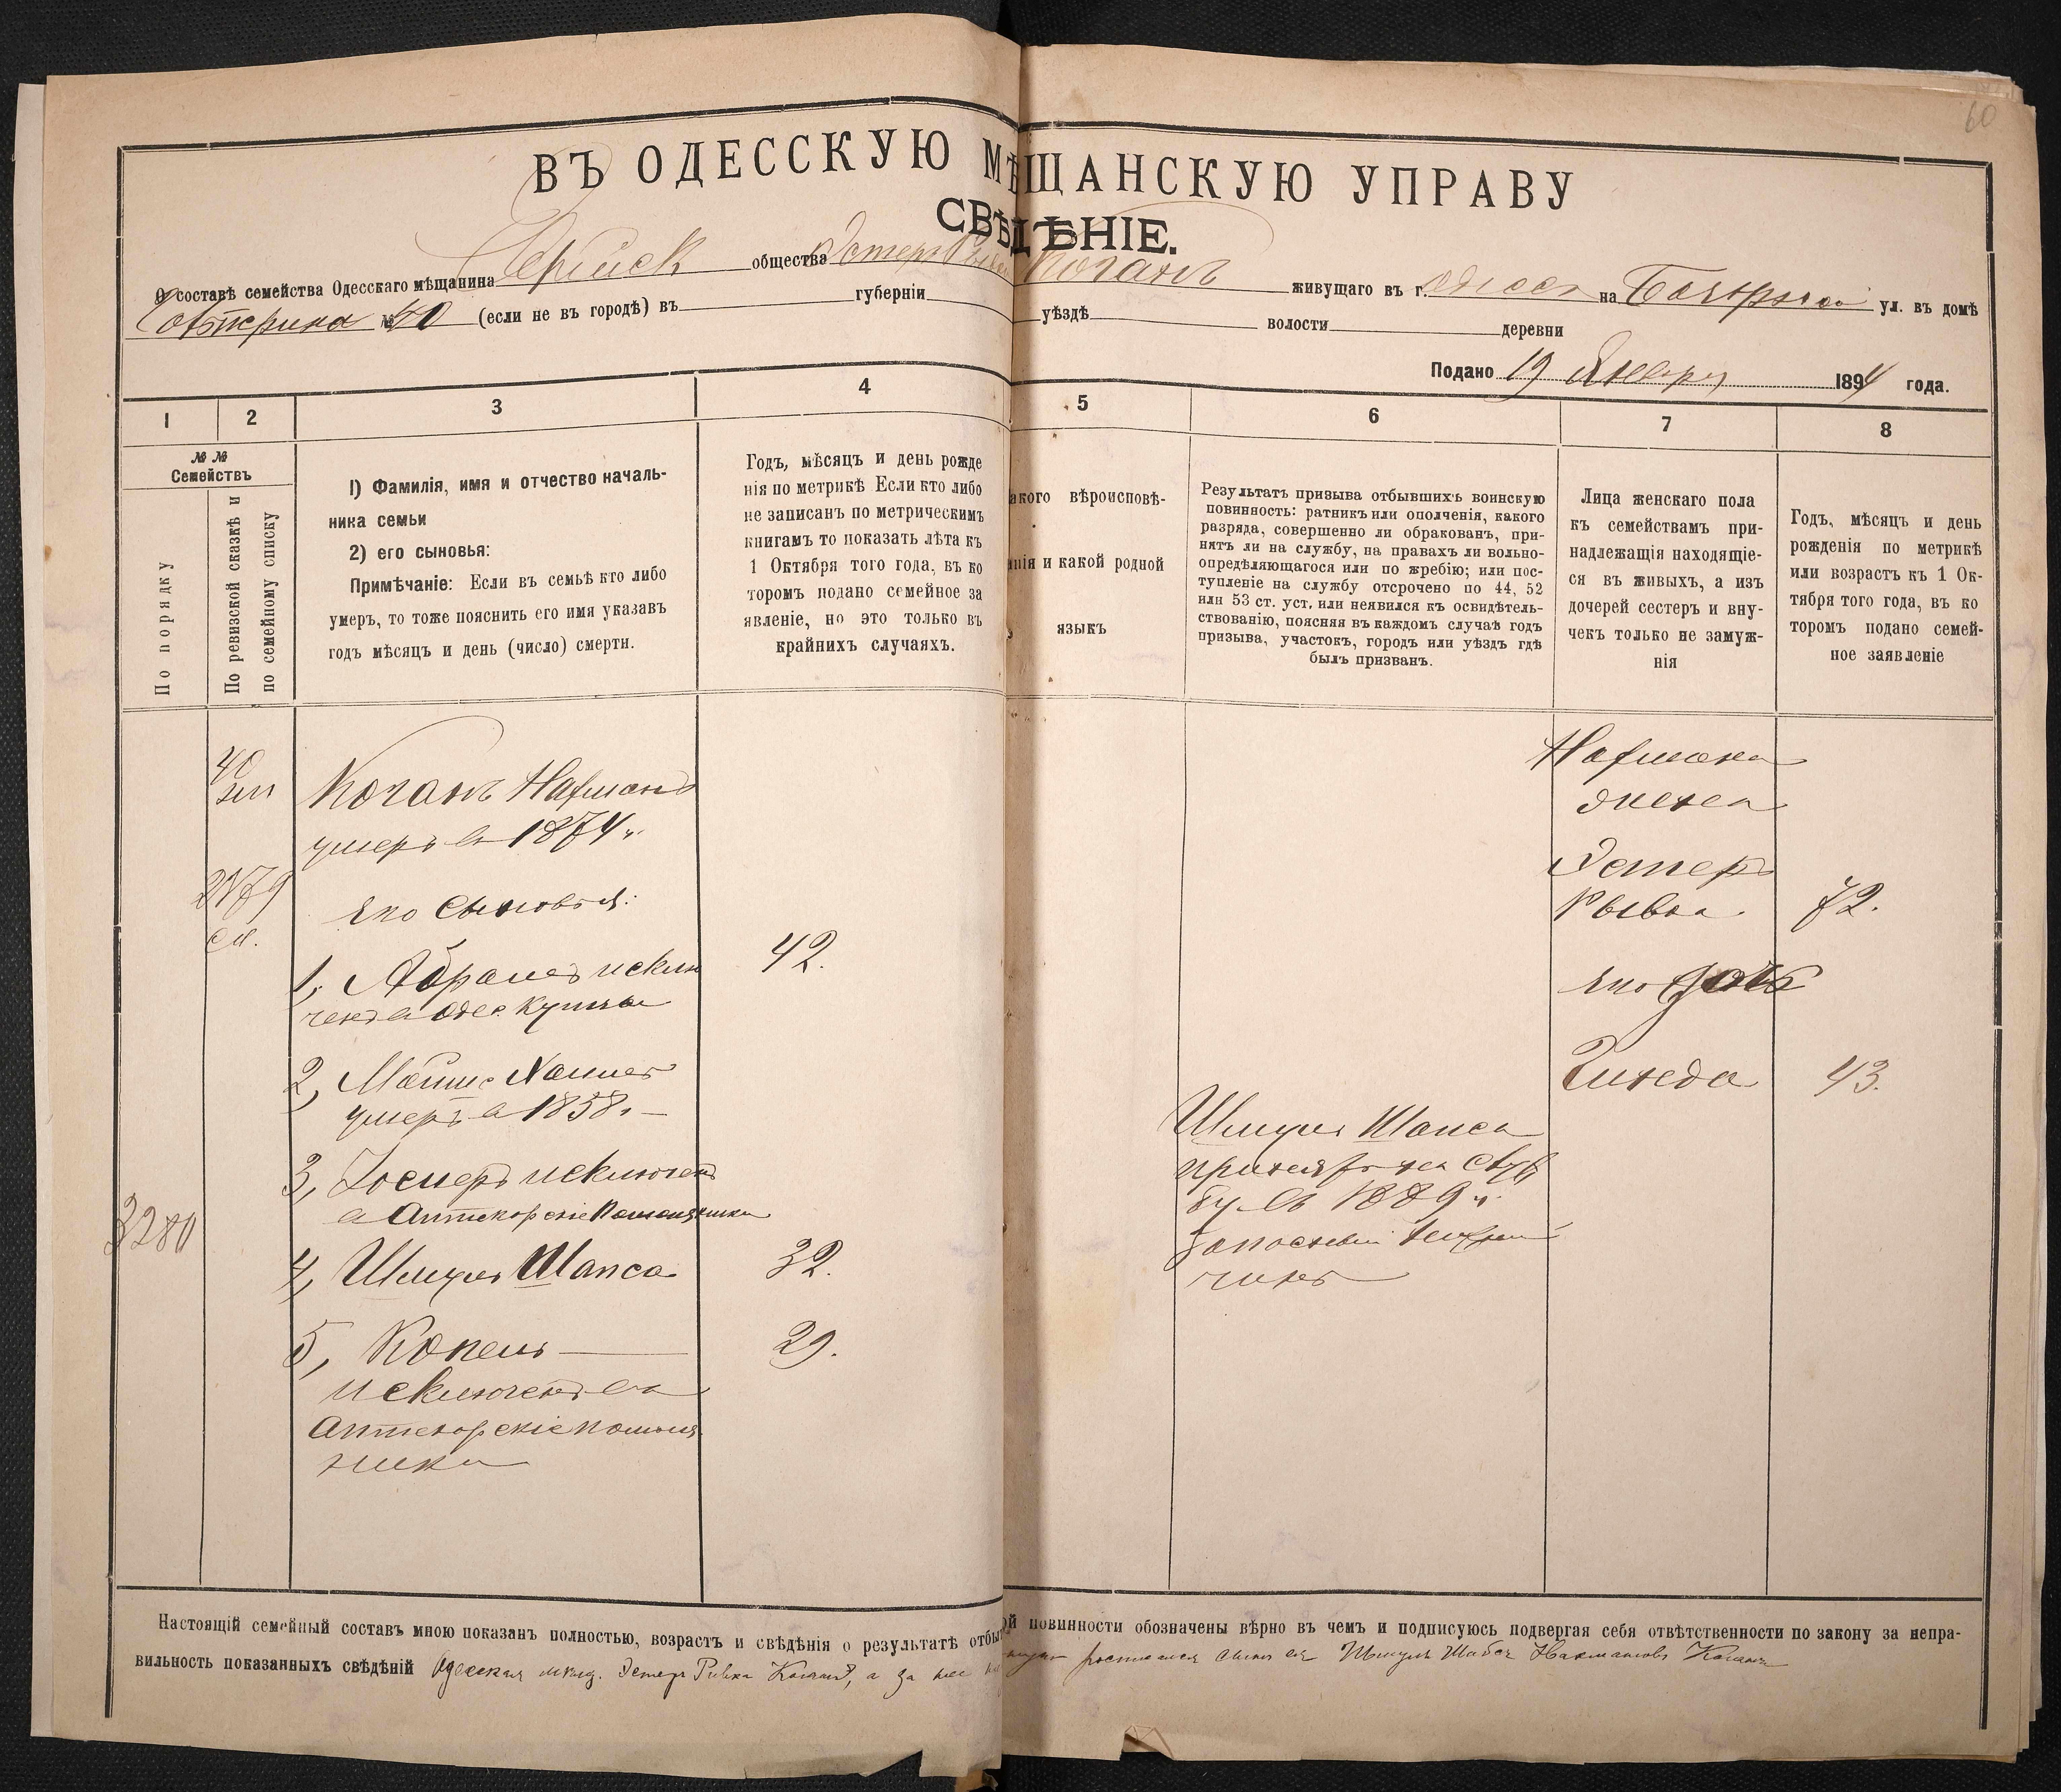 60
ВЪ ОДЕССКУЮ МѢЩАНСКУЮ УПРАВУ
СВѢДѢНІЕ.
О составѣ семейства Одесскаго мѣщанина общества Эстеръ Рывка Коганъ живущаго въ г. Одессѣ на ул. въ домѣ
№ 50 (если не въ городѣ) въ губерніи уѣздѣ волости деревни
Подано 19 Января 1894 года.
1 2 3 4 5 6 7 8
№ №
Семействъ
По порядку
По ревизской сказкѣ и
по семейному списку
I) Фамилія, имя и отчество началь-
ника семьи
2) его сыновья:
Примѣчаніе: Если въ семьѣ кто либо
умеръ, то тоже пояснить его имя указавъ
годъ мѣсяцъ и день (число) смерти.
Годъ, мѣсяцъ и день рожде
нія по метрикѣ Если кто либо
не записанъ по метрическимъ
книгамъ то показать лѣта къ
1 Октября того года, въ ко
торомъ подано семейное за
явленіе, но это только въ
крайнихъ случаяхъ.
акого вѣроисповѣ-
нія и какой родной
языкъ
Результатъ призыва отбывшихъ воинскую
повинность: ратникъ или ополченія, какого
разряда, совершенно ли обракованъ, при-
нятъ ли на службу, на правахъ ли вольно-
опредѣляющагося или по жребію; или пос-
тупленіе на службу отсрочено по 44, 52
или 53 ст. уст. или неявился къ освидѣтель-
ствованію, поясняя въ каждомъ случаѣ годъ
призыва, участокъ, городъ или уѣздъ гдѣ
былъ призванъ.
Лица женскаго пола
къ семействамъ при-
надлежащія находящіе-
ся въ живыхъ, а изъ
дочерей сестеръ и вну-
чекъ только не замуж-
нія
Годъ, мѣсяцъ и день
рожденія по метрикѣ
или возрастъ къ 1 Ок-
тября того года, въ ко
торомъ подано семей-
ное заявленіе
40
Коганъ Нахманъ
умеръ въ 1874 г.
2179
сп.
Его сыновья:
1, Абрамъ исклю 42.
ченъ въ Одес. купцы
2,
умеръ въ 1858 г.
3, Іосифъ исключенъ
въ Аптекарскіе помощники
3280
4, Шмуль Шапса 32.
5, Копель 29.
исключенъ въ
Аптекарскіе помощ
ники
Шмуль Шапса
принятъ на служ
бу въ 1889 г.
запасный
чинъ
Нахмана
жена
Эстеръ
Рывка 72.
Его дочь
Гинеда 43.
Настоящій семейный составъ мною показанъ полностью, возрастъ и свѣдѣнія о результатѣ отбыт ой повинности обозначены вѣрно въ чемъ и подписуюсь подвергая себя отвѣтственности по закону за непра-
вильность показанныхъ свѣдѣній Одесская мѣщ. Эстеръ Ривка Коганъ, а за нее росписался сынъ ея Шмуль Шабса Нахмановъ Коганъ